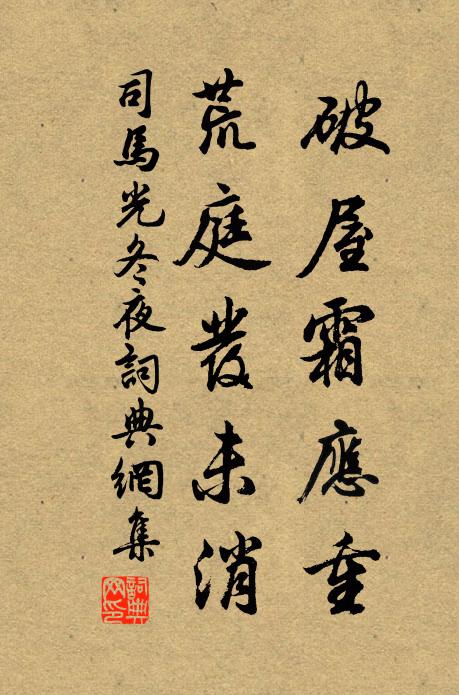 破屋霜應重
荒庭發未消
司馬光冬夜詞典網集
詞典
网印